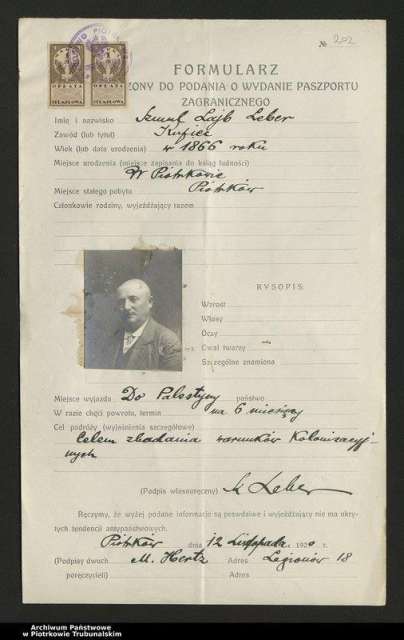 № 202
OPŁATA OPŁATA
STEMPLOWA STEMPLOWA
FORMULARZ
ZONY DO PODANIA O WYDANIE PASZPORTU
ZAGRANICZNEGO
Imię i nazwisko Szmul Lajb Leber
Zawód (lub tytuł) Kupiec
Wiek (lub data urodzenia) w 1866 roku
Miejsce urodzenia (miejsce zapisania do ksiąg ludności)
W Piotrkowie
Miejsce stałego pobytu Piotrków
Członkowie rodziny, wyjeżdżający razem
RYSOPIS:
Wzrost
Włosy
Oczy
Owal twarzy
Szczególne znamiona
Miejsce wyjazdu Do Palestyny państwo
W razie chęci powrotu, termin na 6 miesięcy
Cel podróży (wyjaśnienia szczegółowe)
Celem zbadania warunków Kolonizacyj
nych
(Podpis własnoręczny) Leber
Ręczymy, że wyżej podane informacje są prawdziwe i wyjeżdżający nie ma ukry-
tych tendencji antypaństwowych.
Piotrków dnia 12 Listopada 1920 r.
(Podpisy dwuch M. Hertz Adres Legionów 18
poręczycieli) Adres
Archiwum Państwowe
w Piotrkowie Trybunalskim